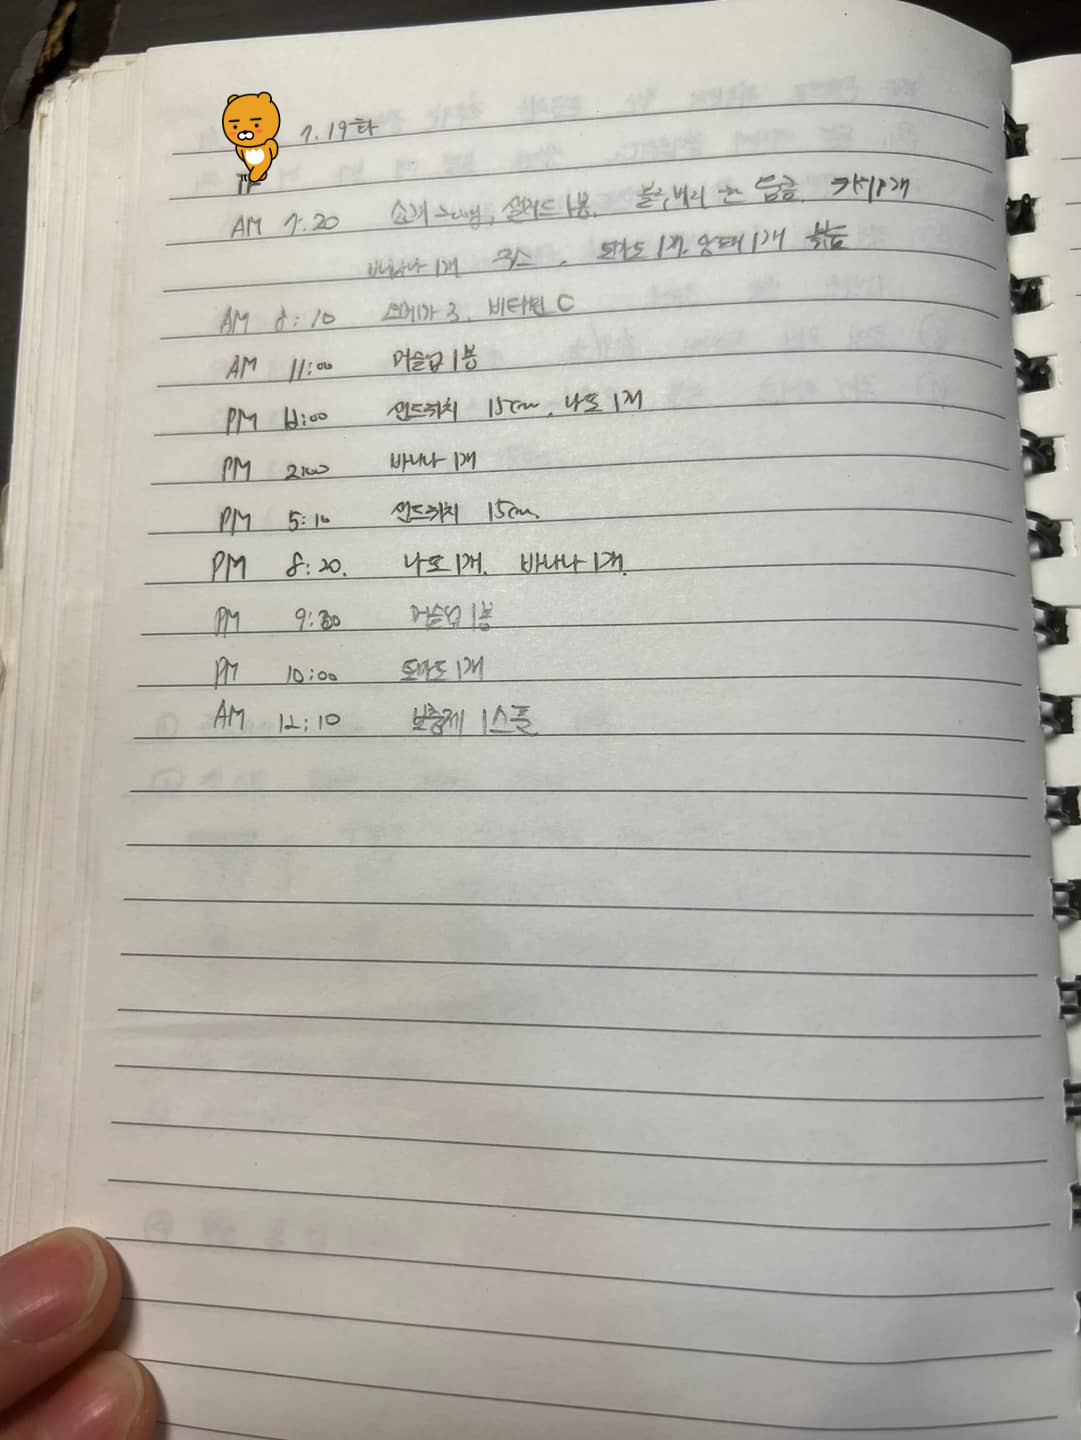 7.19화
AM 7:20 소고기 200g, 샐러드 1봉. 블루베리 한 움큼. 키위 1개
바나나 1개 주스, 토마도 1개, 양파 1개 볶음
AM 8:10 오메가 3, 비타민 C
AM 11:00 머슬업 1봉
PM 12:00 샌드위치 15cm, 낫또 1개
PM 2:00 바나나 1개
PM 5:10 샌드위치 15cm.
PM 8:20. 낫또 1개. 바나나 1개.
PM 9:30 머슬업 1봉
PM 10:00 토마도 1개
AM 12:10 보충제 1스푼